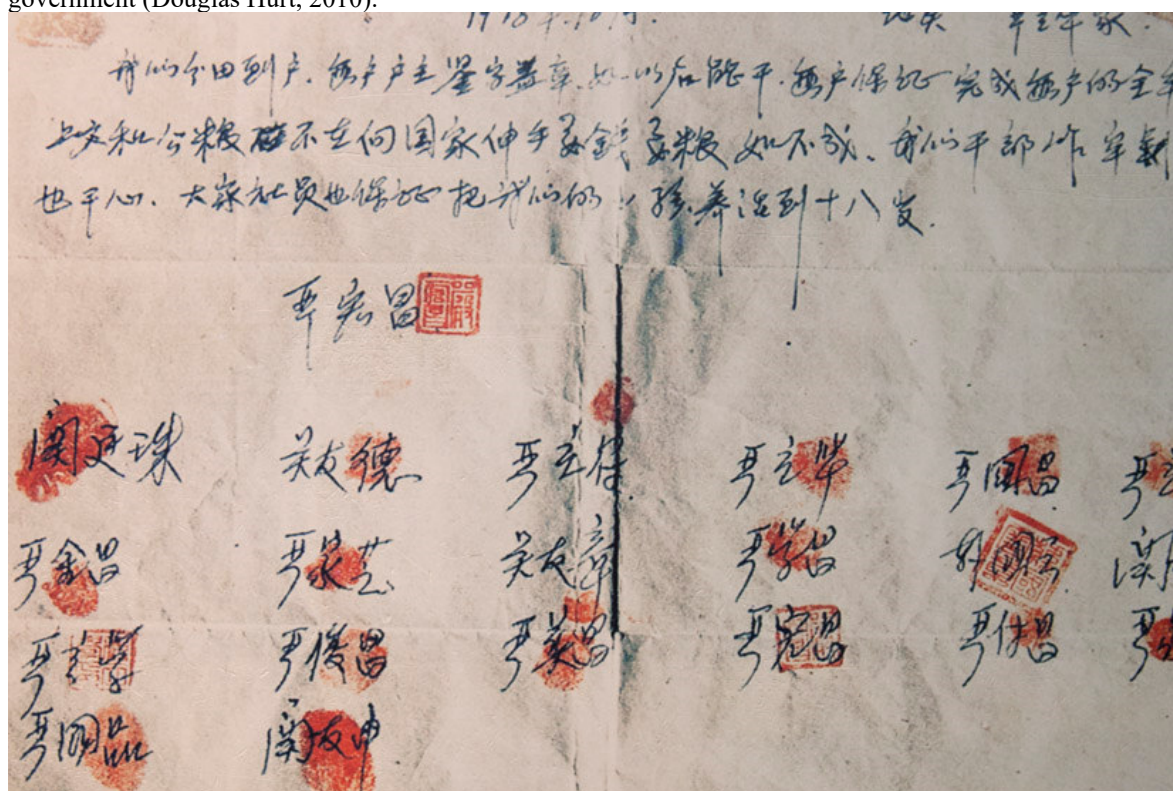 government (Douglas Hurt, 2010).
1978年12月. 地点 严立华家.
我们分田到户.每户户主鉴字盖章.如以后能干.每户保证完成每户的全年
上交和公粮不在向国家伸手要钱要粮如不成.我们干部作牢剎
也干心.大家社员也保证把我们的小孩养活到十八岁.
严宏昌
関廷珠 关友德 严立符 严立华 严国昌 严立
严金昌 严家芝 关友章 严学昌 韩国云 関
严立学 严俊昌 严美昌 严宏昌 严付昌 严
严国品 関友申